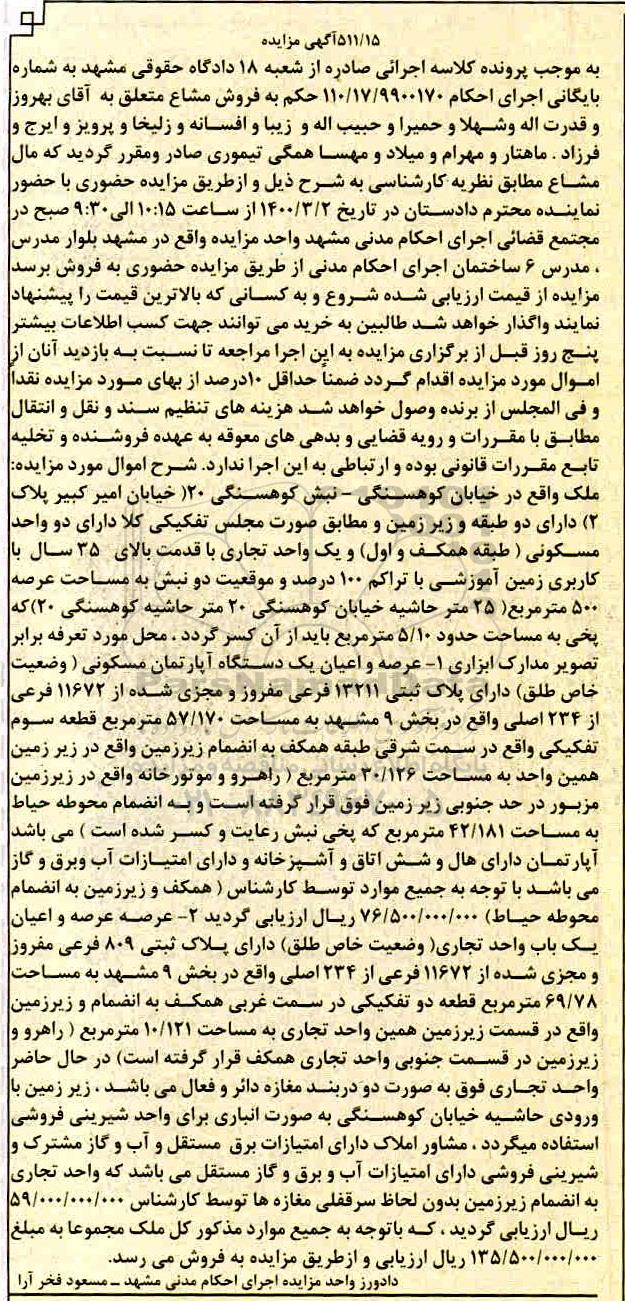 ۵۱۱/۱۵آگهی مزایده
به موجب پرونده کلاسه اجرائی صادره از شعبه ۱۸ دادگاه حقوقی مشهد به شماره
بایگانی اجرای احکام ۱۱۰/۱۷/۹۹۰۰۱۷۰ حکم به فروش مشاع متعلق به آقای بهروز
و قدرت اله وشهلا و حمیرا و حبیب اله و زیبا و افسانه و زلیخا و پرویز و ایرج و
فرزاد . ماهتار و مهرام و میلاد و مهسا همگی تیموری صادر ومقرر گردید که مال
مشاع مطابق نظریه کارشناسی به شرح ذیل و ازطریق مزایده حضوری با حضور
نماینده محترم دادستان در تاریخ ۱۴۰۰/۳/۲ از ساعت ۱۰:۱۵ الی۹:۳۰ صبح در
مجتمع قضائی اجرای احکام مدنی مشهد واحد مزایده واقع در مشهد بلوار مدرس
، مدرس ۶ ساختمان اجرای احکام مدنی از طریق مزایده حضوری به فروش برسد
مزایده از قیمت ارزیابی شده شروع و به کسانی که بالاترین قیمت را پیشنهاد
نمایند واگذار خواهد شد طالبین به خرید می توانند جهت کسب اطلاعات بیشتر
پنج روز قبل از برگزاری مزایده به این اجرا مراجعه تا نسبت به بازدید آنان از
اموال مورد مزایده اقدام گردد ضمناً حداقل ۱۰درصد از بهای مورد مزایده نقداً
و فی المجلس از برنده وصول خواهد شد هزینه های تنظیم سند و نقل و انتقال
مطابق با مقررات و رویه قضایی و بدهی های معوقه به عهده فروشنده و تخلیه
تابع مقررات قانونی بوده و ارتباطی به این اجرا ندارد. شرح اموال مورد مزایده:
ملک واقع در خیابان کوهسنگی - نبش کوهسنگی ۲۰( خیابان امیر کبیر پلاک
۲) دارای دو طبقه و زیر زمین و مطابق صورت مجلس تفکیکی کلا دارای دو واحد
مسکونی ( طبقه همکف و اول) و یک واحد تجاری با قدمت بالای ۳۵ سال با
کاربری زمین آموزشی با تراکم ۱۰۰ درصد و موقعیت دو نبش به مساحت عرصه
۵۰۰ مترمربع( ۲۵ متر حاشیه خیابان کوهسنگی ۲۰ متر حاشیه کوهسنگی ۲۰)که
پخی به مساحت حدود ۵/۱۰ مترمربع باید از آن کسر گردد ، محل مورد تعرفه برابر
تصویر مدارک ابزاری ۱- عرصه و اعیان یک دستگاه آپارتمان مسکونی ( وضعیت
خاص طلق) دارای پلاک ثبتی ۱۳۲۱۱ فرعی مفروز و مجزی شده از ۱۱۶۷۲ فرعی
از ۲۳۴ اصلی واقع در بخش ۹ مشهد به مساحت ۵۷/۱۷۰ مترمربع قطعه سوم
تفکیکی واقع در سمت شرقی طبقه همکف به انضمام زیرزمین واقع در زیر زمین
همین واحد به مساحت ۲۰/۱۲۶ مترمربع ( راهرو و موتورخانه واقع در زیرزمین
مزبور در حد جنوبی زیر زمین فوق قرار گرفته است و به انضمام محوطه حیاط
به مساحت ۴۲/۱۸۱ مترمربع که پخی نبش رعایت و کسر شده است ) می باشد
آپارتمان دارای هال و شش اتاق و آشپزخانه و دارای امتیازات آب وبرق و گاز
می باشد با توجه به جمیع موارد توسط کارشناس ( همکف و زیرزمین به انضمام
محوطه حیاط) ۷۶/۵۰۰/۰۰۰/۰۰۰ ریال ارزیابی گردید ۲- عرصه عرصه و اعیان
یک باب واحد تجاری( وضعیت خاص طلق) دارای پلاک ثبتی ۸۰۹ فرعی مفروز
و مجزی شده از ۱۱۶۷۲ فرعی از ۲۳۴ اصلی واقع در بخش ۹ مشهد به مساحت
۶۹/۷۸ مترمربع قطعه دو تفکیکی در سمت غربی همکف به انضمام و زیرزمین
واقع در قسمت زیرزمین همین واحد تجاری به مساحت ۱۰/۱۲۱ مترمربع ( راهرو و
زیرزمین در قسمت جنوبی واحد تجاری همکف قرار گرفته است) در حال حاضر
واحد تجاری فوق به صورت دو دربند مغازه دائر و فعال می باشد ، زیر زمین با
ورودی حاشیه خیابان کوهسنگی به صورت انباری برای واحد شیرینی فروشی
استفاده میگردد ، مشاور املاک دارای امتیازات برق مستقل و آب و گاز مشترک و
شیرینی فروشی دارای امتیازات آب و برق و گاز مستقل می باشد که واحد تجاری
به انضمام زیرزمین بدون لحاظ سرقفلی مغازه ها توسط کارشناس ۵۹/۰۰۰/۰۰۰/۰۰۰
ریال ارزیابی گردید ، که باتوجه به جمیع موارد مذکور کل ملک مجموعا به مبلغ
۱۳۵/۵۰۰/۰۰۰/۰۰۰ ریال ارزیابی و ازطریق مزایده به فروش می رسد.
دادورز واحد مزایده اجرای احکام مدنی مشهد – مسعود فخر آرا